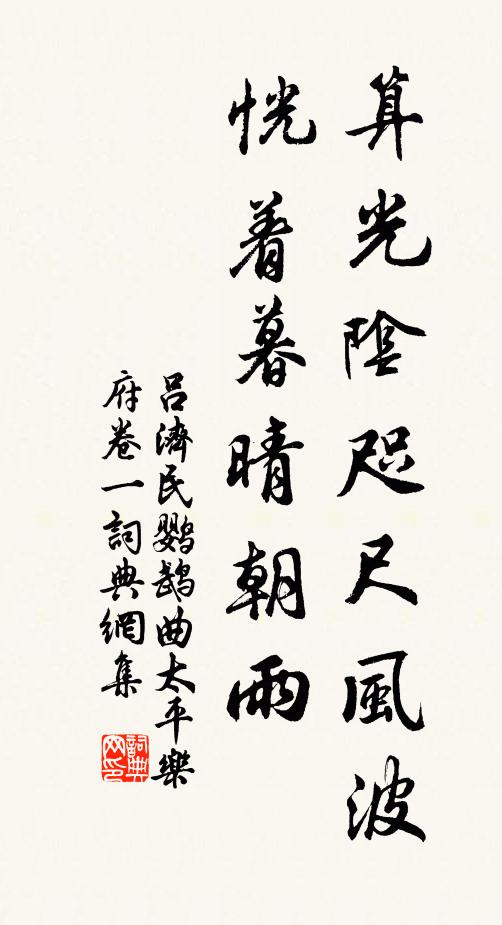 算光陰咫尺風波
恍着暮晴朝雨
吕濟民鸚鵡曲太平樂
府卷一詞典網集
詞典网印